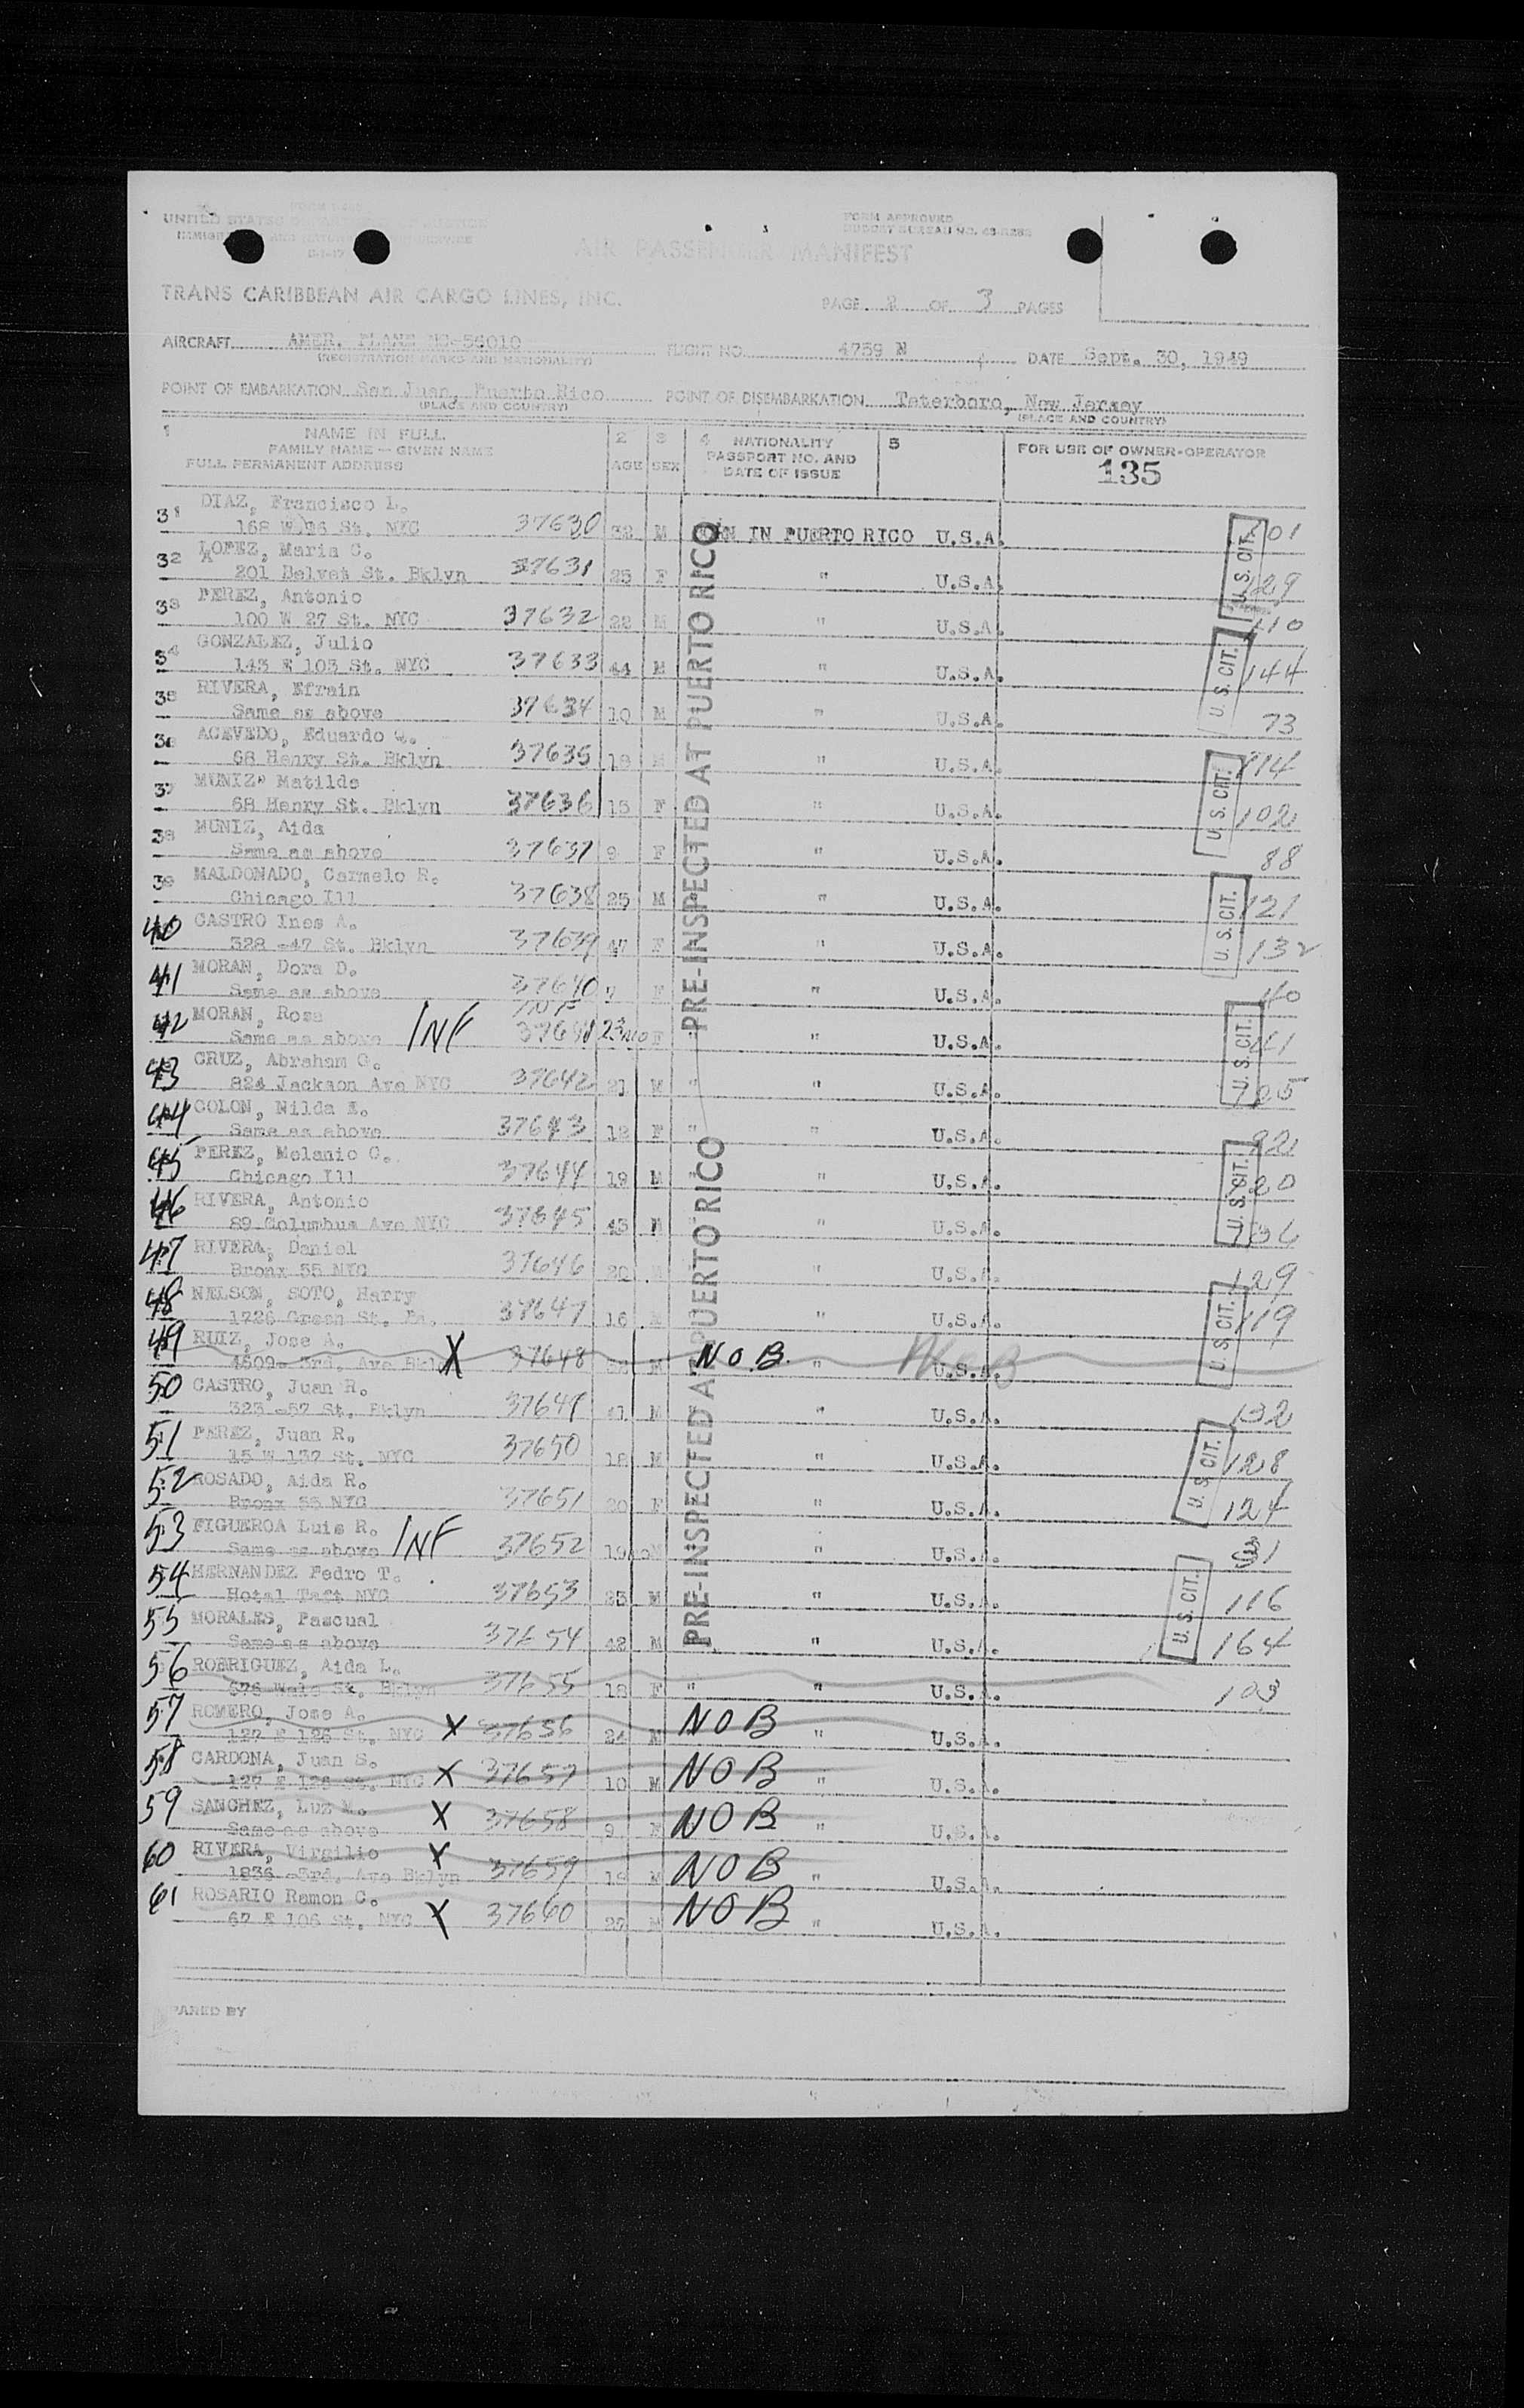 UNITED STATES DEPARTMENT OF JUSTICE
IMMIGRATION AND NATURALIZATION SERVICE
FORM APPROVED
BUDGET BUREAU NO. 43-R282
AIR PASSENGER MANIFEST
TRANS CARIBBEAN AIR CARGO LINES, INC.
PAGE 2 OF 3 PAGES
AIRCRAFT AMER. PLANE NC-56010 FLIGHT NO. 4759 N DATE Sept. 30, 1949
(REGISTRATION MARKS AND NATIONALITY)
POINT OF EMBARKATION San Juan, Puerto Rico POINT OF DISEMBARKATION Teterboro, New Jersey
(PLACE AND COUNTRY) (PLACE AND COUNTRY)
1 NAME IN FULL 2 3 4 NATIONALITY 5 FOR USE OF OWNER-OPERATOR
FAMILY NAME - GIVEN NAME PASSPORT NO. AND
FULL PERMANENT ADDRESS AGE SEX DATE OF ISSUE 135
31 DIAZ, Francisco L.
168 W 76 St. NYC 37630 32 M IN PUERTO RICO U.S.A. 201
32 LOPEZ, Maria C.
201 Delvet St. Bklyn 37631 25 F " U.S.A. 129
33 PEREZ, Antonio
100 W 27 St. NYC 37632 22 M " U.S.A. 110
34 GONZALEZ, Julio
143 E 103 St. NYC 37633 44 M " U.S.A. 144
35 RIVERA, Efrain
Same as above 37634 10 M " U.S.A. 73
36 ACEVEDO, Eduardo
68 Henry St. Bklyn 37635 18 M " U.S.A. 114
37 MUNIZ, Matilde
68 Henry St. Bklyn 37636 15 F " U.S.A. 102
38 MUNIZ, Aida
Same as above 37637 9 F " U.S.A. 88
39 MALDONADO, Carmelo R.
Chicago Ill 37638 25 M " U.S.A. 121
40 CASTRO Ines A.
328 -47 St. Bklyn 37639 47 F " U.S.A. 132
41 MORAN, Dora D.
Same as above 37640 7 F " U.S.A. 40
42 MORAN, Rosa INF
Same as above INF 37641 23 mo F " U.S.A. 41
43 CRUZ, Abraham G.
824 Jackson Ave NYC 37642 21 M " " U.S.A. 125
44 COLON, Nilda E.
Same as above 37643 12 F " " U.S.A. 92
45 PEREZ, Melanio C.
Chicago Ill 37644 19 M " " U.S.A. 120
46 RIVERA, Antonio
89 Columbus Ave NYC 37645 43 M " U.S.A. 136
47 RIVERA, Daniel
Bronx 55 NYC 37646 20 " U.S.A. 129
48 NELSON, SOTO, Harry
1726 Green St. Pa. 37647 16 M " U.S.A. 119
49 RUIZ, Jose A.
4609- 3rd. Ave Bkl X 37648 M NOB. " NOB U.S.A.
50 CASTRO, Juan R.
323 -57 St. Bklyn 37649 41 M " U.S.A. 132
51 PEREZ, Juan R.
15 W 137 St. NYC 37650 18 M " U.S.A. 128
52 ROSADO, Aida R.
Bronx 55 NYC 37651 20 F " U.S.A. 124
53 FIGUEROA Luis R. INF
Same as above 37652 19 M " U.S.A. 31
54 HERNANDEZ Pedro T.
Hotel Taft NYC 37653 23 M " U.S.A. 116
55 MORALES, Pascual
Same as above 37654 42 M " U.S.A. 164
56 RODRIGUEZ, Aida L.
St. Bklyn 37655 18 F " " U.S.A. 103
57 ROMERO, Jose A.
127 E 126 St. NYC X 37656 24 M NOB " U.S.A.
58 CARDONA, Juan S.
127 E 126 St. NYC X 37657 10 M NOB " U.S.A.
59 SANCHEZ, Luz M.
Same as above X 37658 9 F NOB " U.S.A.
60 RIVERA, Virgilio X
1836 -3rd. Ave Bklyn 37659 18 M NOB " U.S.A.
61 ROSARIO Ramon C.
67 E 106 St. NYC X 37660 27 M NOB " U.S.A.
PRE-INSPECTED AT PUERTO RICO
PRE-INSPECTED AT PUERTO RICO
U. S. CIT.
U. S. CIT.
U. S. CIT.
U. S. CIT.
U. S. CIT.
U. S. CIT.
U. S. CIT.
U. S. CIT.
U. S. CIT.
PARED BY